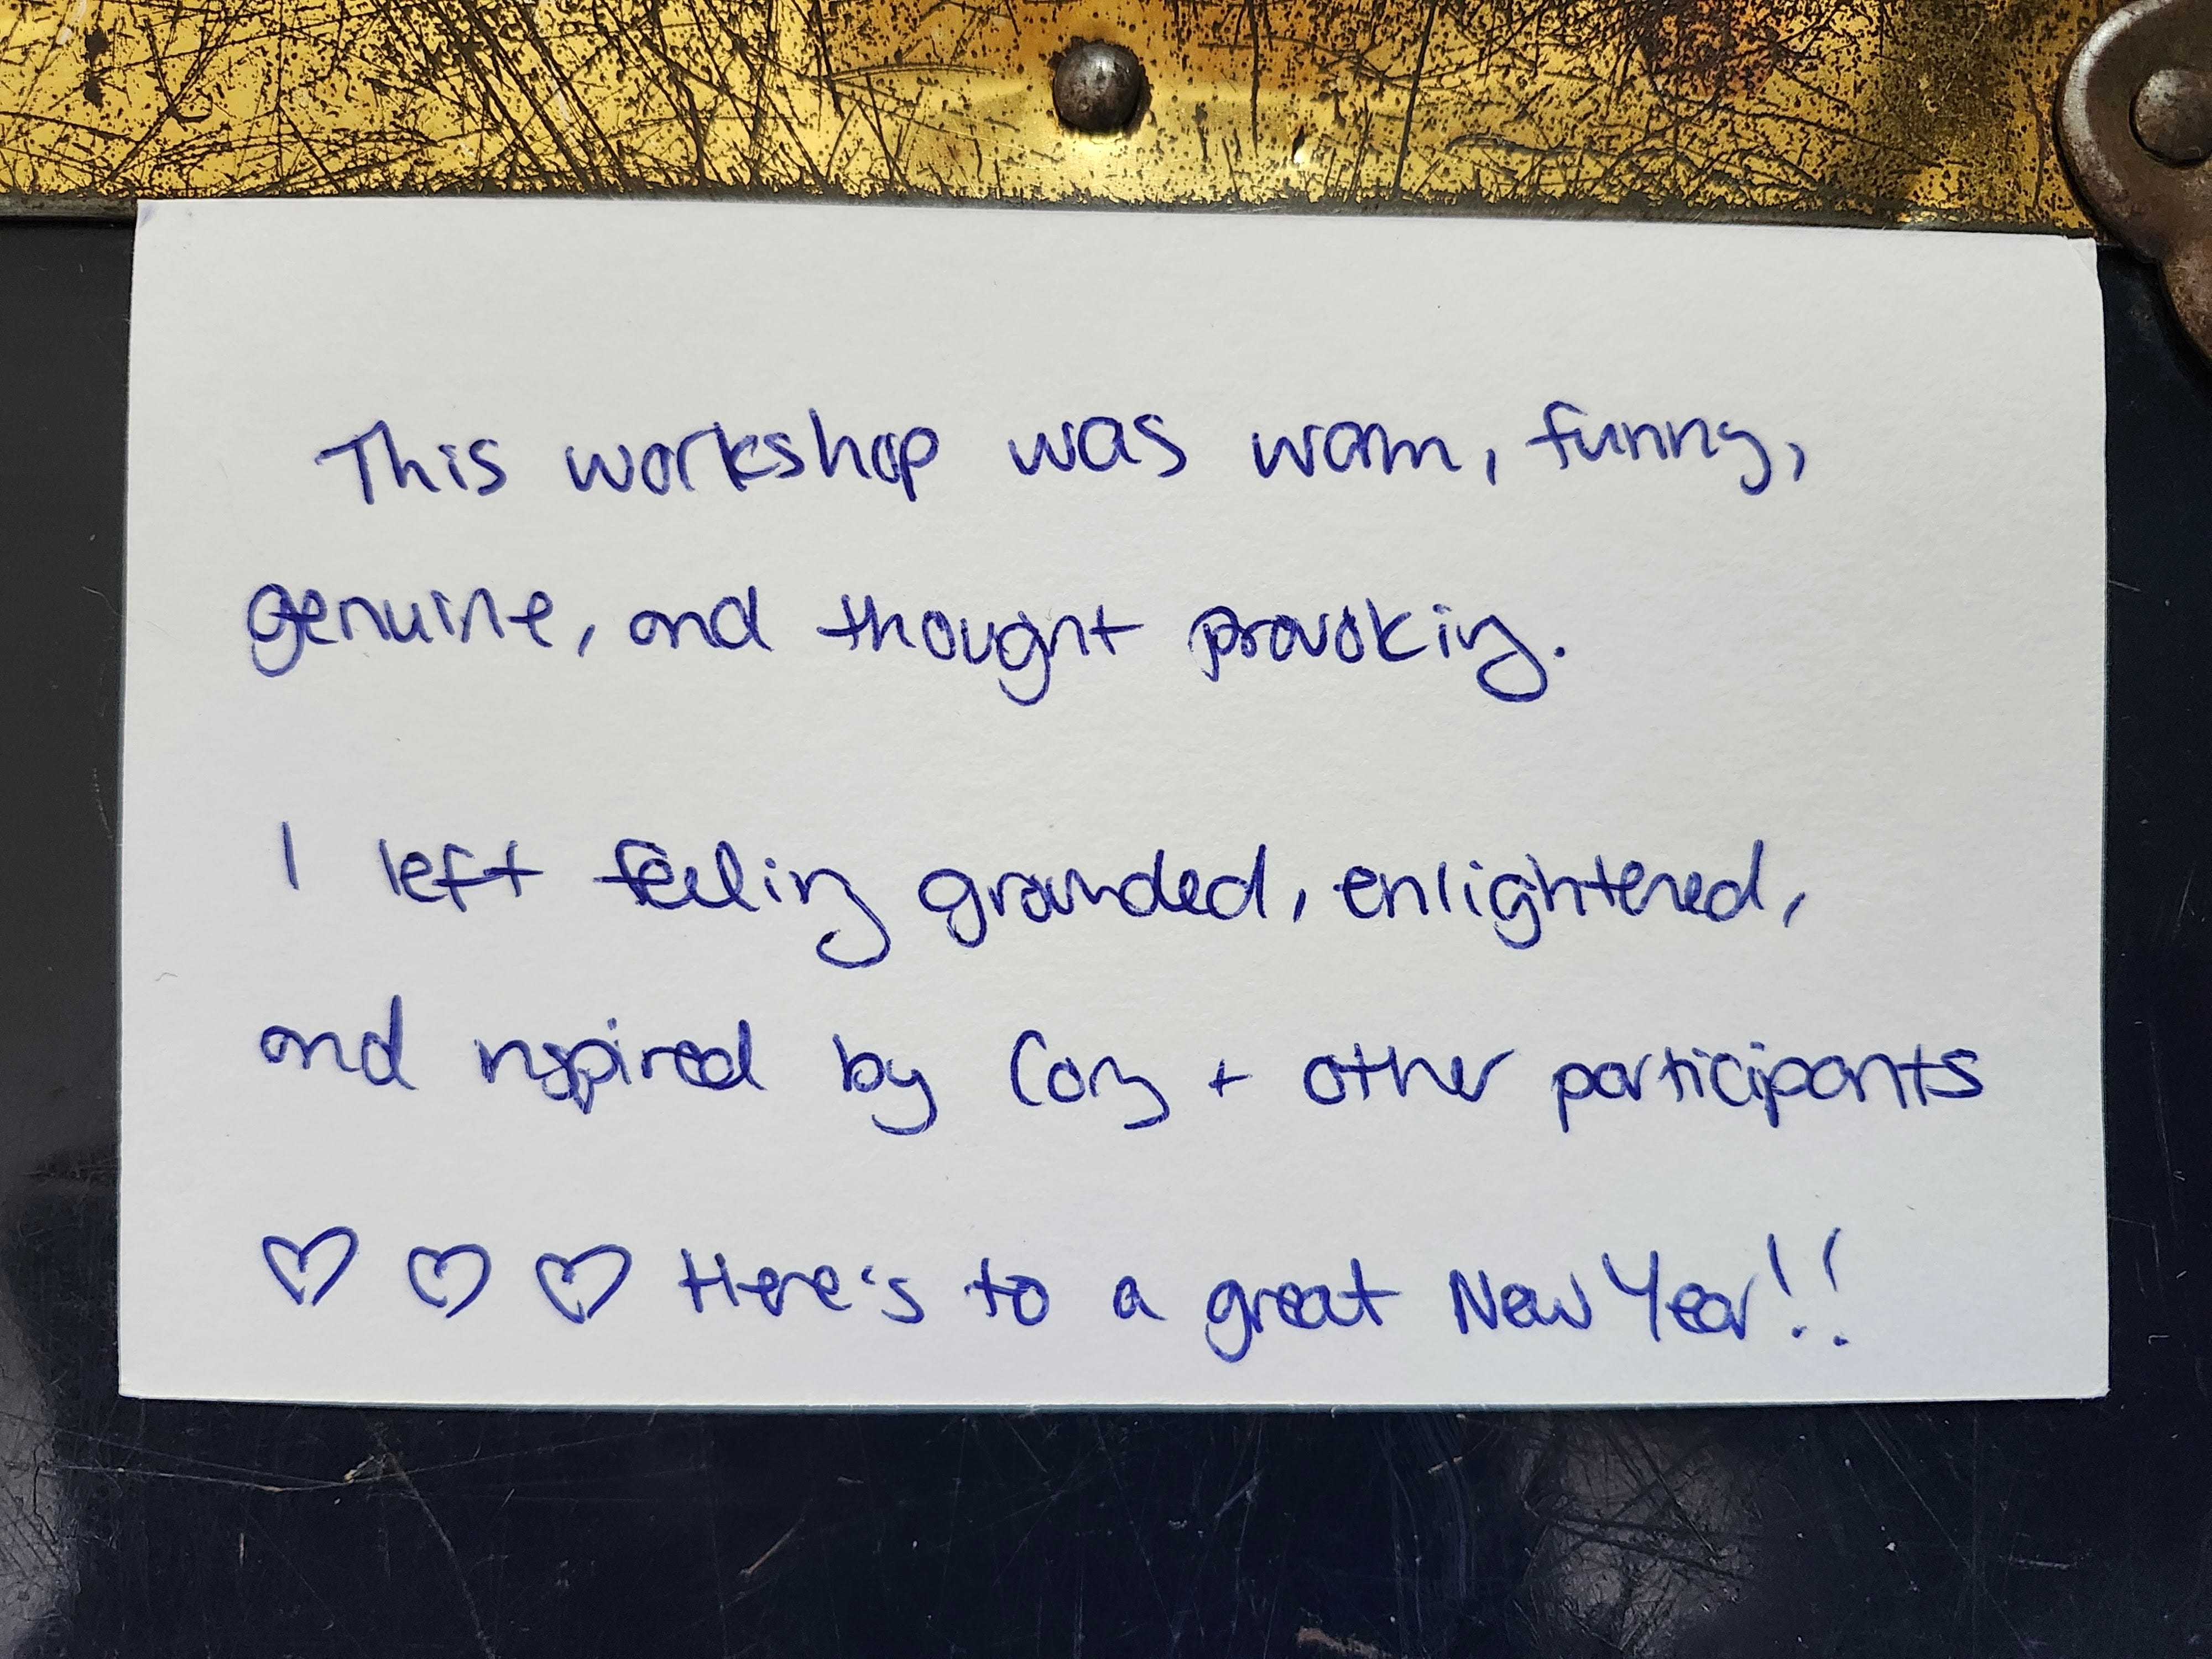 This workshop was warm, funny,
genuine, and thought provoking.
I left feeling grounded, enlightened,
and inspired by Cory + other participants
♡ ♡ ♡ Here's to a great New Year!!